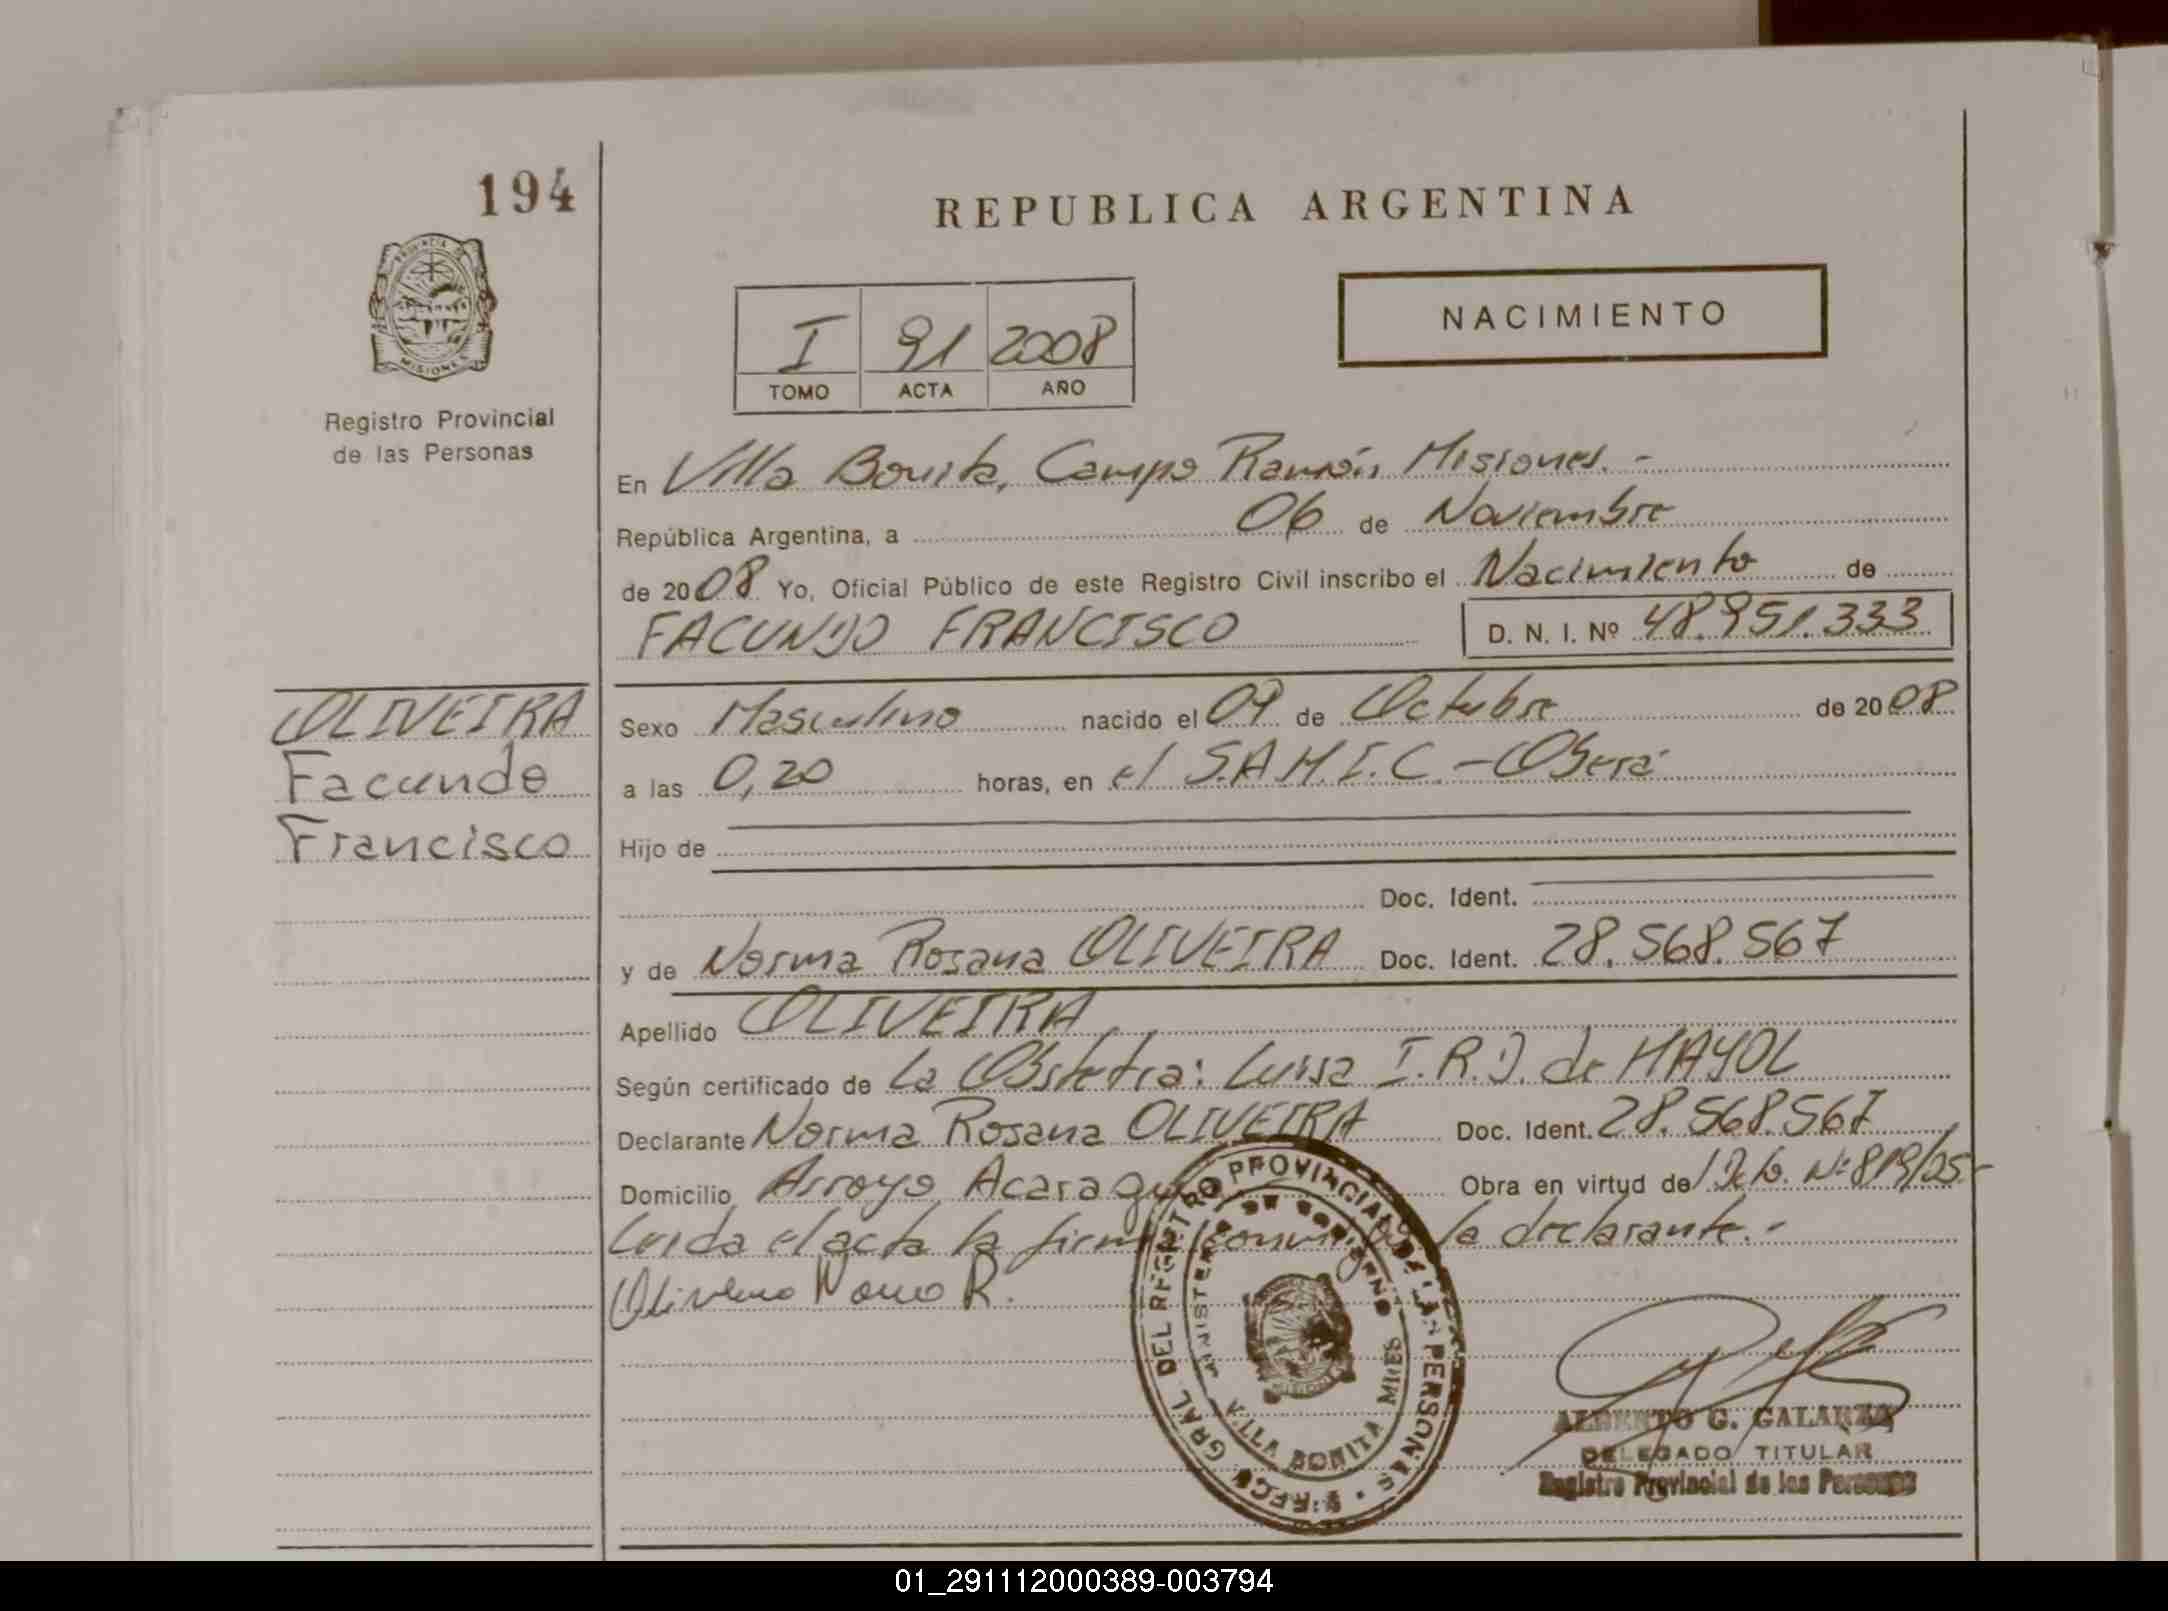 194
REPUBLICA ARGENTINA
PROVINCIA DE
MISIONES
NACIMIENTO
I 91 2008
TOMO ACTA AÑO
Registro Provincial
de las Personas
En Villa Bonita, Campo Ramón, Misiones.-
República Argentina, a 06 de Noviembre
de 2008 Yo, Oficial Público de este Registro Civil inscribo el Nacimiento de
FACUNDO FRANCISCO D. N. I. Nº 48.951.333
OLIVEIRA
Facundo
Francisco
Sexo Masculino nacido el 09 de Octubre de 2008
a las 0,20 horas, en el S.A.M.I.C.-Oberá
Hijo de
Doc. Ident.
y de Norma Rosana OLIVEIRA Doc. Ident. 28.568.567
Apellido OLIVEIRA
Según certificado de La Obstetra: Luisa I.R.D. de MAYOL
Declarante Norma Rosana OLIVEIRA Doc. Ident. 28.568.567
Domicilio Arroyo Acaragua Obra en virtud de Dcto. Nº 819/05.-
Leida el acta la firma conmigo la declarante.-
Oliveira Norma R.
GRAL DEL REGISTRO PROVINCIAL DE LAS PERSONAS
MINISTERIO DE GOBIERNO
VILLA BONITA MNES
ALBERTO G. GALARZA
DELEGADO TITULAR
Registro Provincial de las Personas
01_291112000389-003794